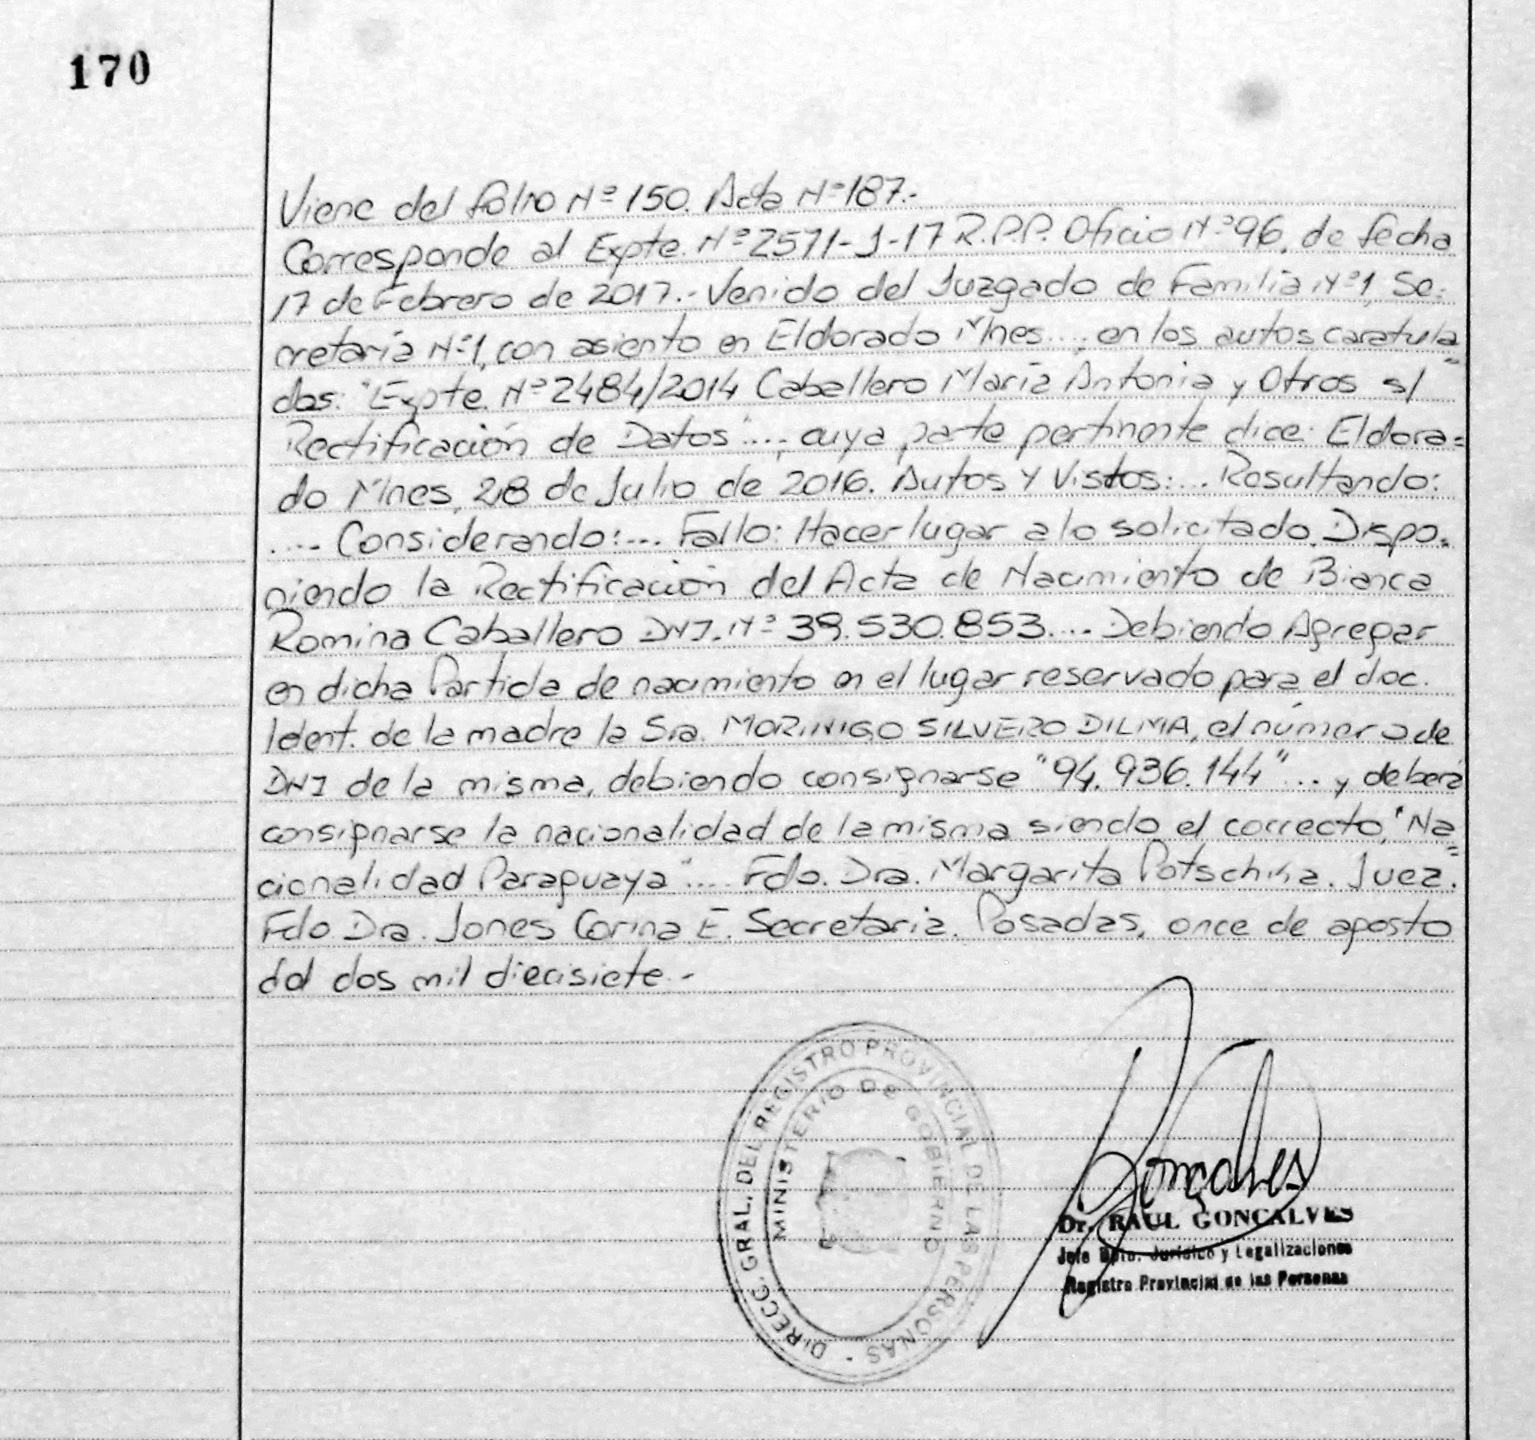 170
Viene del folio Nº 150. Acta Nº 187.-
Corresponde al Expte. Nº 2571-J-17 R.P.P. Oficio Nº 96, de fecha
17 de Febrero de 2017.- Venido del Juzgado de Familia Nº 1, Se-
cretaría Nº 1, con asiento en Eldorado Mnes...., en los autos caratula=
dos: "Expte. Nº 2484/2014 Caballero María Antonia y Otros s/
Rectificación de Datos"...., cuya parte pertinente dice: Eldora=
do Mnes, 28 de Julio de 2016. Autos Y Vistos:... Resultando:
.... Considerando:.... Fallo: Hacer lugar a lo solicitado. Dispo-
niendo la Rectificación del Acta de Nacimiento de Bianca
Romina Caballero DNI. Nº 39.530.853.... Debiendo Agregar
en dicha Partida de nacimiento en el lugar reservado para el doc.
Ident. de la madre la Sra. MORINIGO SILVERO DILMA, el número de
DNI de la misma, debiendo consignarse "94.936.144"... y deberá
consignarse la nacionalidad de la misma siendo el correcto, "Na=
cionalidad Paraguaya".... Fdo. Dra. Margarita Potschka. Juez.
Fdo Dra. Jones Corina E. Secretaria. Posadas, once de agosto
del dos mil diecisiete.-
DIRECC. GRAL. DEL REGISTRO PROVINCIAL DE LAS PERSONAS -
MINISTERIO DE GOBIERNO
Gonçalves
Dr. RAUL GONCALVES
Jefe Dpto. Jurídico y Legalizaciones
Registro Provincial de las Personas